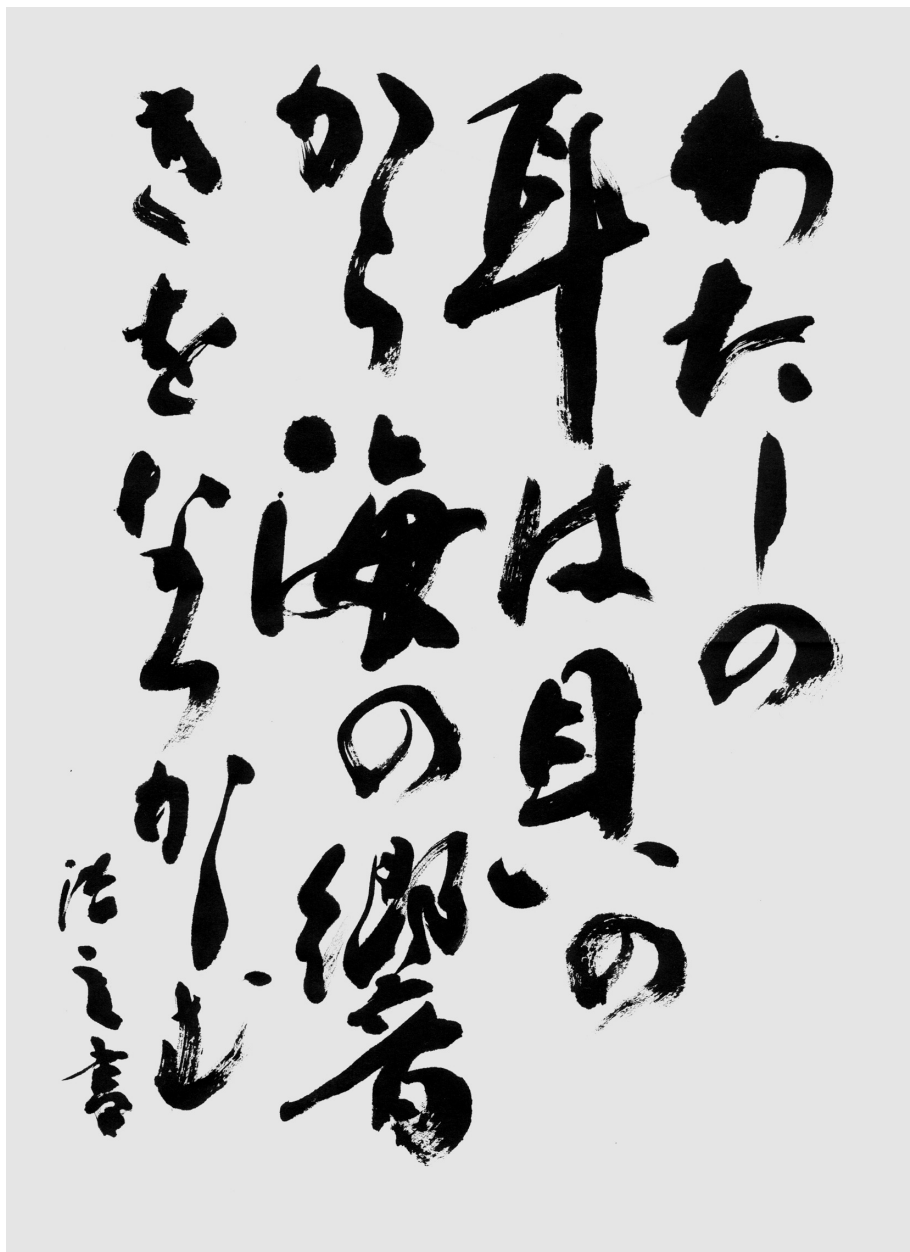 わたしの
耳は貝の
から海の響
きをなつかしむ
之書